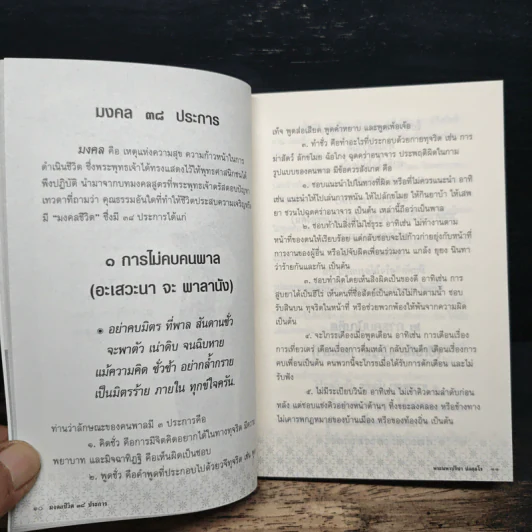 มงคล ๓๘ ประการ
มงคล คือ เหตุแห่งความสุข ความก้าวหน้าในการ
ดำเนินชีวิต ซึ่งพระพุทธเจ้าได้ทรงแสดงไว้ให้พุทธศาสนิกชนได้
พึงปฏิบัติ นำมาจากบทมงคลสูตรที่พระพุทธเจ้าตรัสตอบปัญหา
เทวดาที่ถามว่า คุณธรรมอันใดที่ทำให้ชีวิตประสบความเจริญหรือ
มี "มงคลชีวิต" ซึ่งมี ๓๘ ประการได้แก่
๑ การไม่คบคนพาล
(อะเสวะนา จะ พาลานัง)
๑ อย่าคบมิตร ที่พาล สันดานชั่ว
จะพาตัว เน่าดิบ จนฉิบหาย
แม้ความคิด ชั่วช้า อย่ากล้ำกราย
เป็นมิตรร้าย ภายใน ทุกข์ใจครัน.
ท่านว่าลักษณะของคนพาลมี ๓ ประการคือ
๑. คิดชั่ว คือการมีจิตคิดอยากได้ในทางทุจริต มีความ
พยาบาท และมิจฉาทิฏฐิ คือเห็นผิดเป็นชอบ
๒. พูดชั่ว คือคำพูดที่ประกอบไปด้วยวจีทุจริต เช่น พูด
๑๐ มงคลชีวิต ๓๘ ประการ
เท็จ พูดส่อเสียด พูดคำหยาบ และพูดเพ้อเจ้อ
๓. ทำชั่ว คือทำอะไรที่ประกอบด้วยกายทุจริต เช่น การ
ฆ่าสัตว์ ลักขโมย ฉ้อโกง ฉุดคร่าอนาจาร ประพฤติผิดในกาม
รูปแบบของคนพาล มีข้อควรสังเกต คือ
๑. ชอบแนะนำไปในทางที่ผิด หรือที่ไม่ควรแนะนำ อาทิ
เช่น แนะนำให้ไปเล่นการพนัน ให้ไปลักขโมย ให้กินยาบ้า ให้เสพ
ยา ชวนไปฉุดคร่าอนาจาร เป็นต้น เหล่านี้ถือว่าเป็นพาล
๒. ชอบทำในสิ่งที่ไม่ใช่ธุระ อาทิเช่น ไม่ทำงานตาม
หน้าที่ของตนให้เรียบร้อย แต่กลับชอบจะไปก้าวก่ายยุ่งกับหน้าที่
การงานของผู้อื่น หรือไปจับผิดเพื่อนร่วมงาน แกล้ง ยุยง นินทา
ว่าร้ายกันและกัน เป็นต้น
๓. ชอบทำผิดโดยเห็นสิ่งผิดเป็นของดี อาทิเช่น การ
สูบยาได้เป็นฮีโร่ เห็นคนที่ซื่อสัตย์เป็นคนโง่ไม่กินตามน้ำ ชอบ
รับสินบน ทุจริตในหน้าที่ หรือช่วยพวกพ้องให้พ้นจากความผิด
เป็นต้น
๔. จะโกรธเคืองเมื่อพูดเตือน อาทิเช่น เตือนเรื่องการ
การเที่ยวเตร่ เตือนเรื่องการดื่มเหล้า กลับบ้านดึก เตือนเรื่องการ
คบเพื่อนเป็นต้น คนพวกนี้จะโกรธเมื่อได้รับการตักเตือน และไม่
รับฟัง
๕. ไม่มีระเบียบวินัย อาทิเช่น ไม่เข้าคิวตามลำดับก่อน
หลัง แต่ชอบแซงคิวอย่างหน้าด้านๆ ทิ้งขยะลงคลอง หรือข้างทาง
ไม่เคารพกฎหมายของบ้านเมือง หรือของท้องถิ่น เป็นต้น